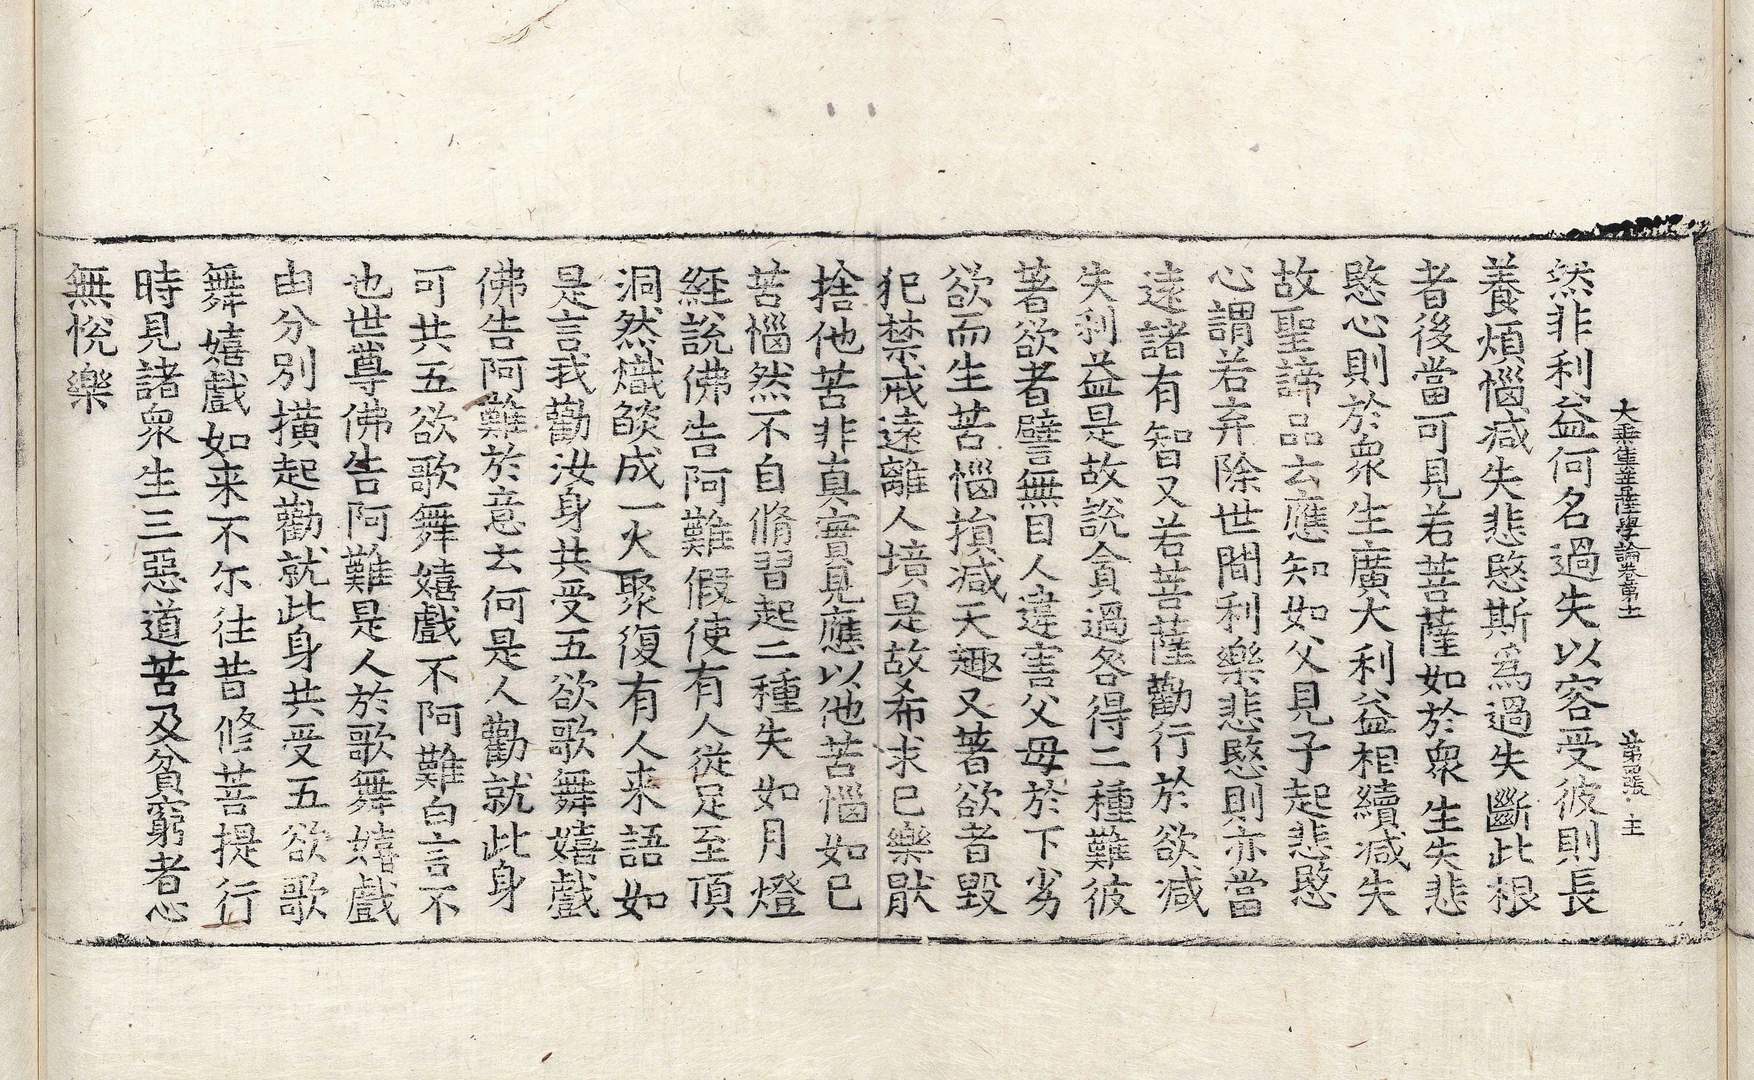 大乘集菩薩學論卷第十一 第四張 主
然非利益何名過失以容受彼則長
養煩惱減失悲愍斯爲過失斷此根
者後當可見若菩薩如於衆生失悲
愍心則於衆生廣大利益相續減失
故聖諦品云應知如父見子起悲愍
心謂若弃除世間利樂悲愍則亦當
遠諸有智又若菩薩勸行於欲減
失利益是故說貪過咎得二種難彼
著欲者譬無目人違害父母於下劣
欲而生苦惱損減天趣又著欲者毀
犯禁戒遠離人境是故希求已樂猒
捨他苦非真實見應以他苦惱如已
苦惱然不自脩習起二種失如月燈
經說佛告阿難假使有人從足至頂
洞然熾燄成一火聚復有人来語如
是言我勸汝身共受五欲歌舞嬉戲
佛告阿難於意云何是人勸就此身
可共五欲歌舞嬉戲不阿難白言不
也世尊佛告阿難是人於歌舞嬉戲
由分別橫起勸就此身共受五欲歌
舞嬉戲如来不尒往昔修菩提行
時見諸衆生三惡道苦及貧窮者心
無悅樂